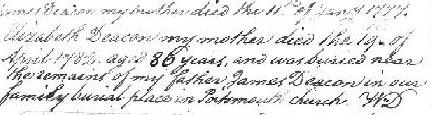 James Deacon my brother died the 11th of Jany 1777.
Elizabeth Deacon my mother died the 19th of
April 1782. aged 86 years, and was buried near
the remains of my father James Deacon in our
family burial place in Portsmouth church. WD